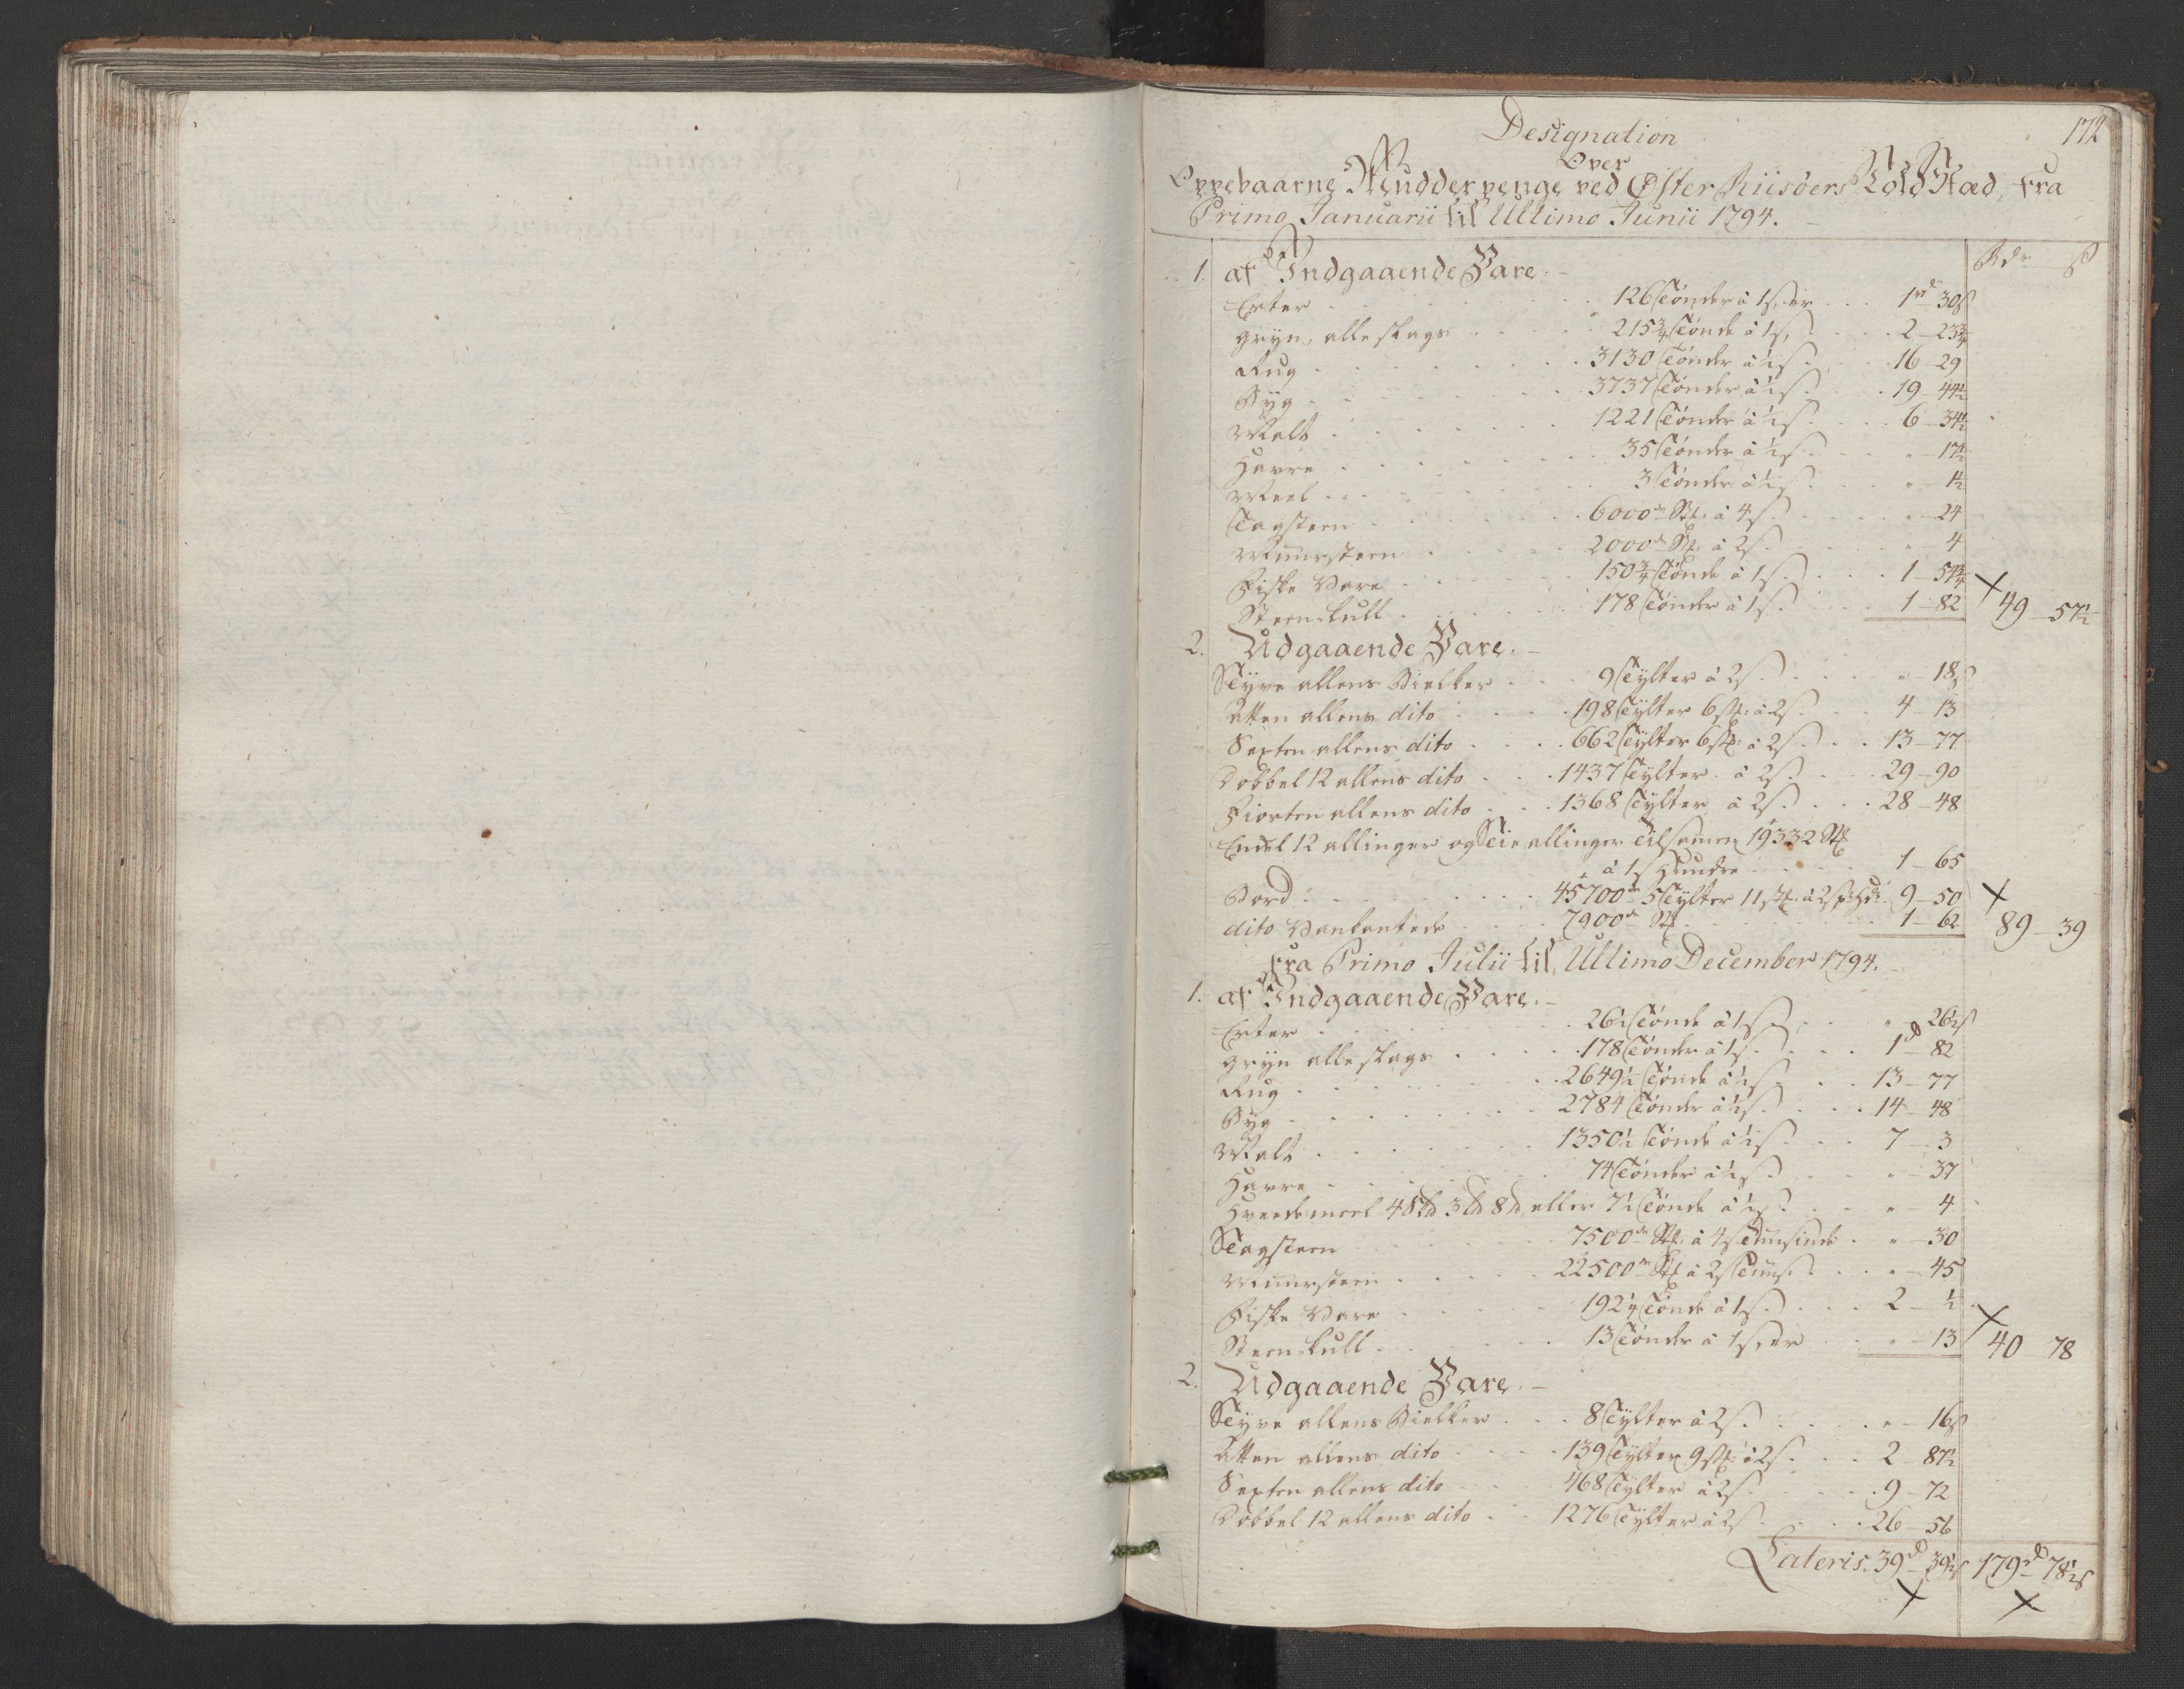 172
Designation
Over
Oppebaarne Mudderpenge ved Øster Riisöers Told Stæd, fra
Primo Januarii til Ultimo Junii 1794.
Rdr ß
1. af Indgaaende Vare.
Erter . . . 126 Tönder à 1 ß, er . . . 1rd 30ß
Gryn, alle slags . . . 215 3/4 Tönde à 1 ß, . . . 2 - 23 3/4
Rug . . . 3130 Tönder à 1/2 ß . . . 16 - 29
Byg . . . 3737 Tönder à 1/2 ß . . . 19 - 44 1/2
Malt . . . 1221 Tönder à 1/2 ß . . . 6 - 34 1/2
Havre . . . 35 Tönder à 1/2 ß . . . " - 17 1/2
Meel . . . 3 Tönder à 1/2 ß . . . " - 1 1/2
Tagsteen . . . 6000de St. à 4 ß . . . " - 24
Muursteen . . . 2000de St. à 2 ß . . . " - 4
Fiske Vare . . . 150 3/4 Tönde à 1 ß . . . 1 - 54 3/4
Steenkull . . . 178 Tönder à 1 ß . . . 1 - 82 × 49 - 57 1/2
2. Udgaaende Vare.
Tyve allens Bielker . . . 9 Tylter à 2 ß . . . " - 18ß
Atten allens dito . . . 198 Tylter 6 st. à 2 ß . . . 4 - 13
Sexten allens dito . . . 662 Tylter 6 st. à 2 ß . . . 13 - 77
Dobbel 12 allens dito . . . 1437 Tylter à 2 ß . . . 29 - 90
Fiorten allens dito . . . 1368 Tylter à 2 ß . . . 28 - 48
Enckel 12 allinger og Tie allinger tilsamen 19332 St.
à 1 ß Hundre . . . 1 - 65
Bord . . . 45700de 5 Tylter 11 st. à 2 ß pr. Hdr. 9 - 50 ×
dito Vankantede . . . 7900de St. . . . 1 - 62 89 - 39
fra Primo Julii til Ultimo December 1794.
1. af Indgaaende Vare.
Erter . . . 26 1/2 Tönde à 1 ß . . . " - 26 1/2 ß
Gryn alle slags . . . 178 Tönder à 1 ß . . . 1d - 82
Rug . . . 2649 1/2 Tönde à 1/2 ß . . . 13 - 77
Byg . . . 2784 Tönder à 1/2 ß . . . 14 - 48
Malt . . . 1350 1/2 Tönde à 1/2 ß . . . 7 - 3
Havre . . . 74 Tönder à 1/2 ß . . . " - 37
Hvedemeel 4 S℔ 3 L℔ 8 ℔, eller 7 1/2 Tönde à 1/2 ß . . . " - 4
Tagsteen . . . 7500de St. à 4 ß Tuusinde . . . " - 30
Muursteen . . . 22500de St. à 2 ß Tuus. . . . " - 45
Fiske Vare . . . 192 1/4 Tönde à 1 ß . . . 2 - 1/2
Steenkull . . . 13 Tönder à 1 ß, er . . . " - 13 × 40 - 78
2. Udgaaende Vare.
Tyve allens Bielker . . . 8 Tylter à 2 ß . . . " - 16ß
Atten allens dito . . . 139 Tylter 9 st. à 2 ß . . . 2 - 87 1/2
Sexten allens dito . . . 468 Tylter à 2 ß . . . 9 - 72
Dobbel 12 allens dito . . . 1276 Tylter à 2 ß . . . 26 - 56
Lateris. 39d - 39 1/2 ß 179rd 78 1/2 ß
× ×